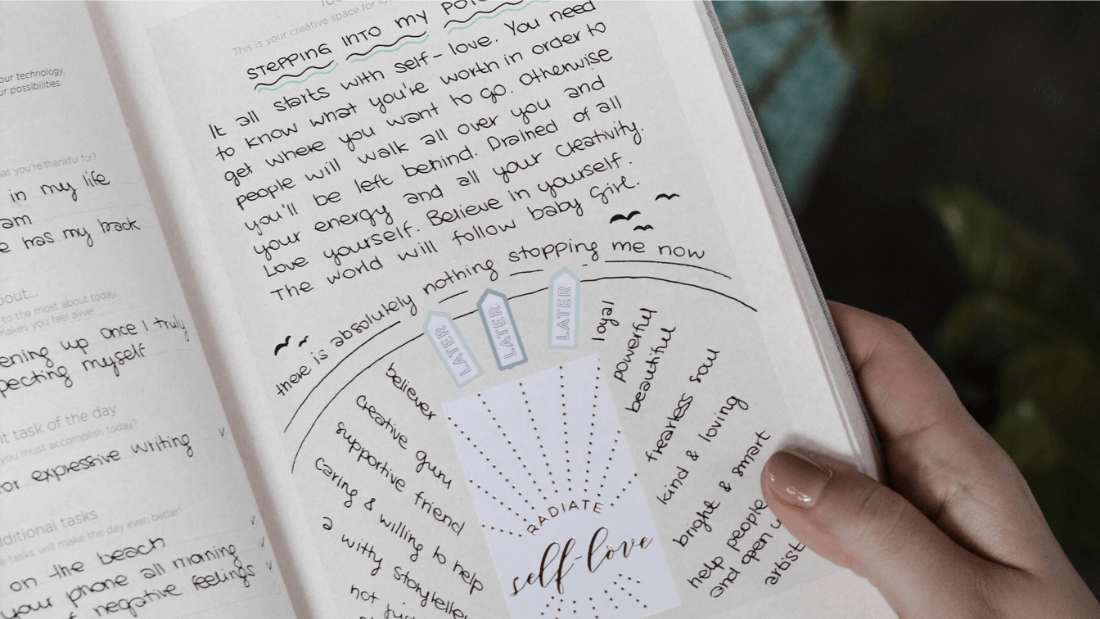 our technology.
ur possibilities.
at you're thankful for?
in my life
am
e has my back
bout...
to the most about today.
makes you feel alive!
ening up once I truly
pecting myself
nt task of the day
you must accomplish today?
or expressive writing
ditional tasks
tasks will make the day even better!
on the beach
your phone all morning
f negative feelings
This is your creative space for
STEPPING INTO MY
It all starts with self-love. You need
to know what you're worth in order to
get where you want to go. Otherwise
people will walk all over you and
you'll be left behind. Drained of all
your energy and all your creativity.
Love yourself. Believe in yourself.
The world will follow baby girl.
there is absolutely nothing stopping me now
LATER
LATER
LATER
believer
creative guru
supportive friend
caring & willing to help
a witty storyteller
loyal
powerful
beautiful
fearless soul
kind & loving
bright & smart
help people
and open u
artist
RADIATE
self-love